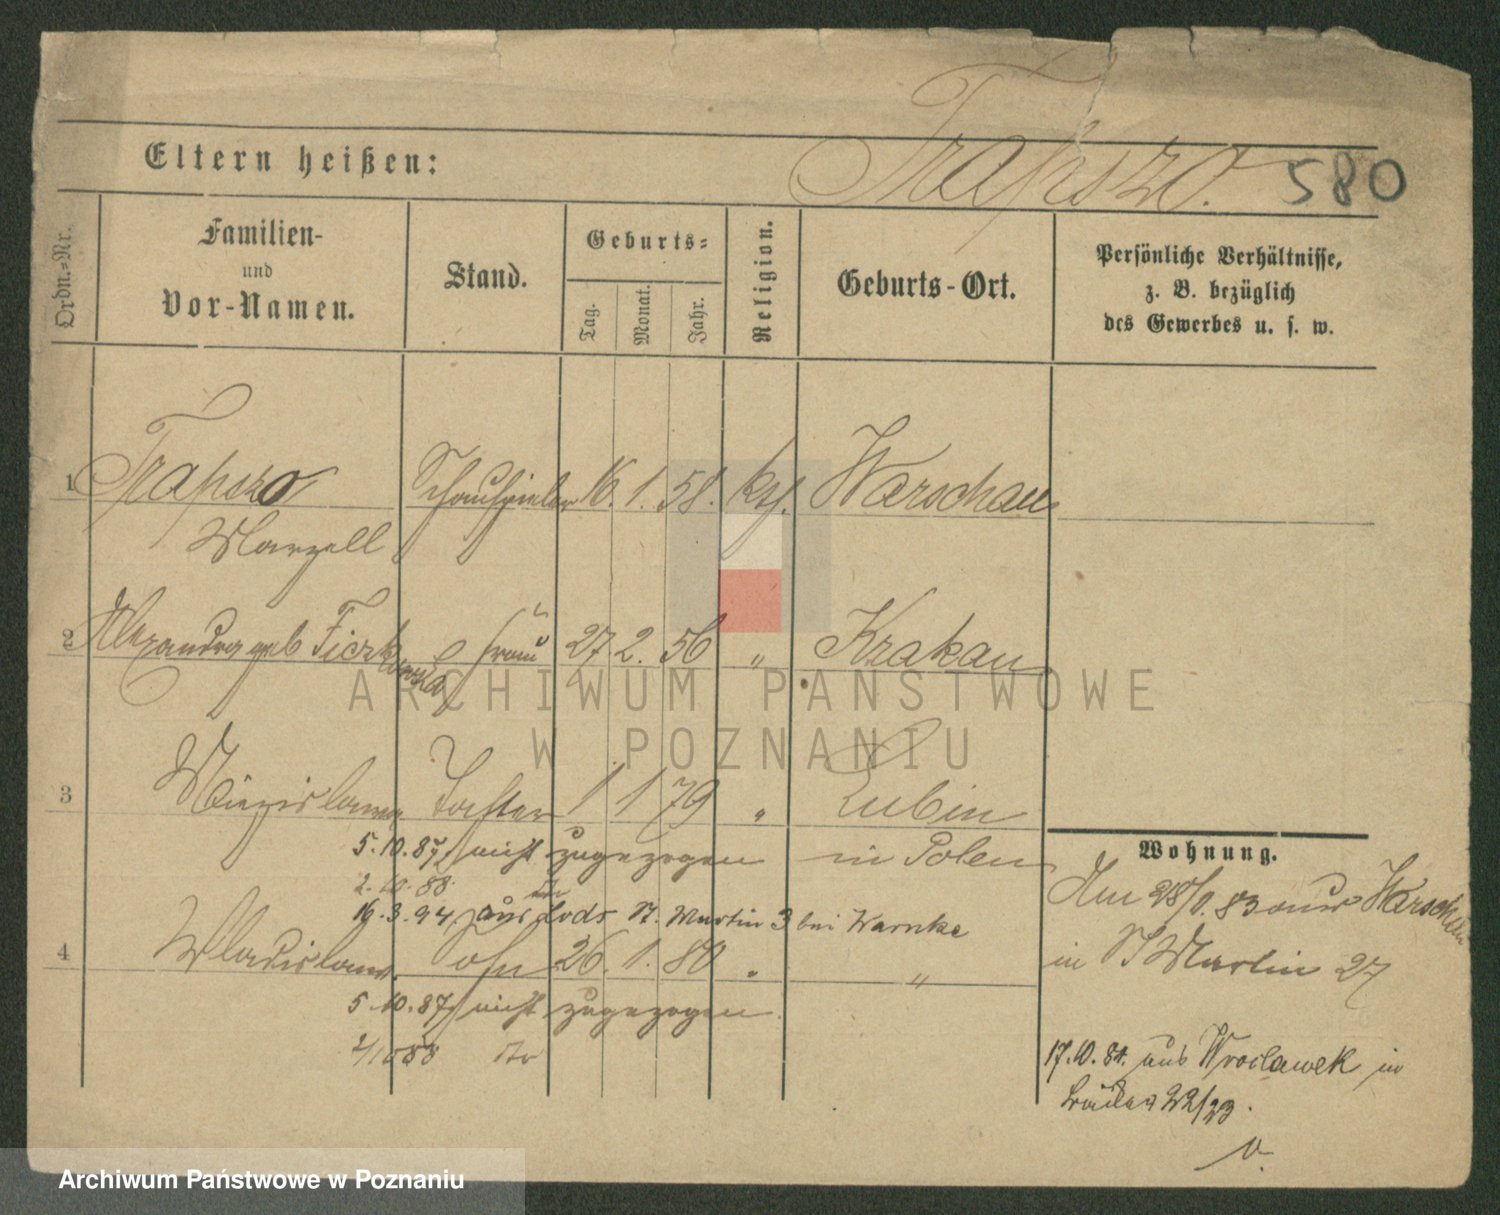 Trapszo. 580
Eltern heißen:
Ordn.-Nr.
Familien-
und
Vor-Namen.
Stand.
Geburts-
Tag.
Monat.
Jahr.
Religion.
Geburts-Ort.
Persönliche Verhältnisse,
z. B. bezüglich
des Gewerbes u. s. w.
1 Trapszo Schauspieler 16. 1. 58. kth. Warschau
Marzell
2 Alexandra geb Ficzkowska Frau 27. 2. 56 " Krakau
ARCHIWUM PAŃSTWOWE
W POZNANIU
3 Miezislawa Tochter 1 1 79 " Lubin
5.10.87 nicht zugezogen in Polen
2.10.88
16.3.94 aus Lods St. Martin 3 bei Warnke
4 Wladislaus. Sohn 26. 1. 80 " "
5.10.87 nicht zugezogen.
2/10 88 dto
Wohnung.
Am 28/9. 83 aus Warschau
in St Martin 27
17.10.84. aus Wroclawek in
22/23.
Archiwum Państwowe w Poznaniu